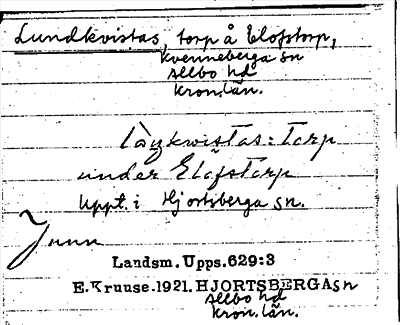 Lundkvistas, torp å Elofstorp,
Kvenneberga sn
Allbo hd
Kron.län.
under Elofstorp
Uppt. i Hjortsberga sn.
Landsm. Upps. 629:3
E. Kruuse. 1921. HJORTSBERGA sn
Allbo hd
Kron. län.